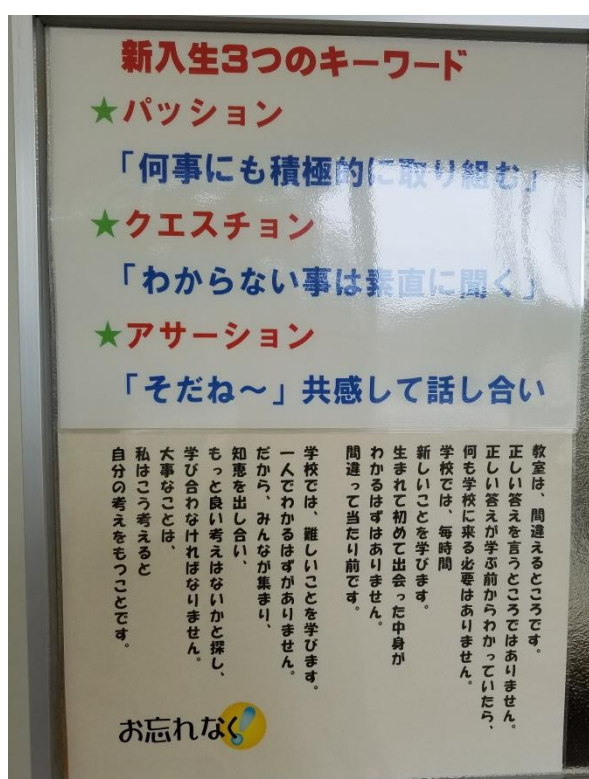 新入生3つのキーワード
★パッション
「何事にも積極的に取り組む」
★クエスチョン
「わからない事は素直に聞く」
★アサーション
「そだね～」共感して話し合い
教室は、間違えるところです。
正しい答えを言うところではありません。
正しい答えが学ぶ前からわかっていたら、
何も学校に来る必要はありません。
学校では、毎時間
新しいことを学びます。
生まれて初めて出会った中身が
わかるはずはありません。
間違って当たり前です。
学校では、難しいことを学びます。
一人でわかるはずがありません。
だから、みんなが集まり、
知恵を出し合い、
もっと良い考えはないかと探し、
学び合わなければなりません。
大事なことは、
私はこう考えると
自分の考えをもつことです。
お忘れなく!